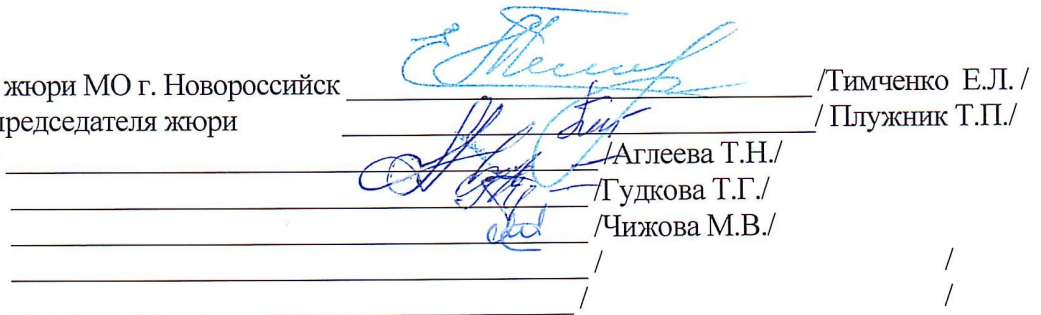 жюри МО г. Новороссийск /Тимченко Е.Л. /
председателя жюри / Плужник Т.П./
/Аглеева Т.Н./
/Гудкова Т.Г./
/Чижова М.В./
/ /
/ /